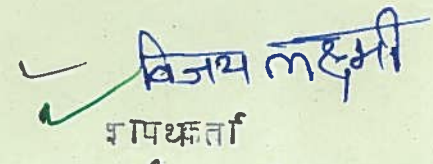 विजय लक्ष्मी
शपथकर्ता